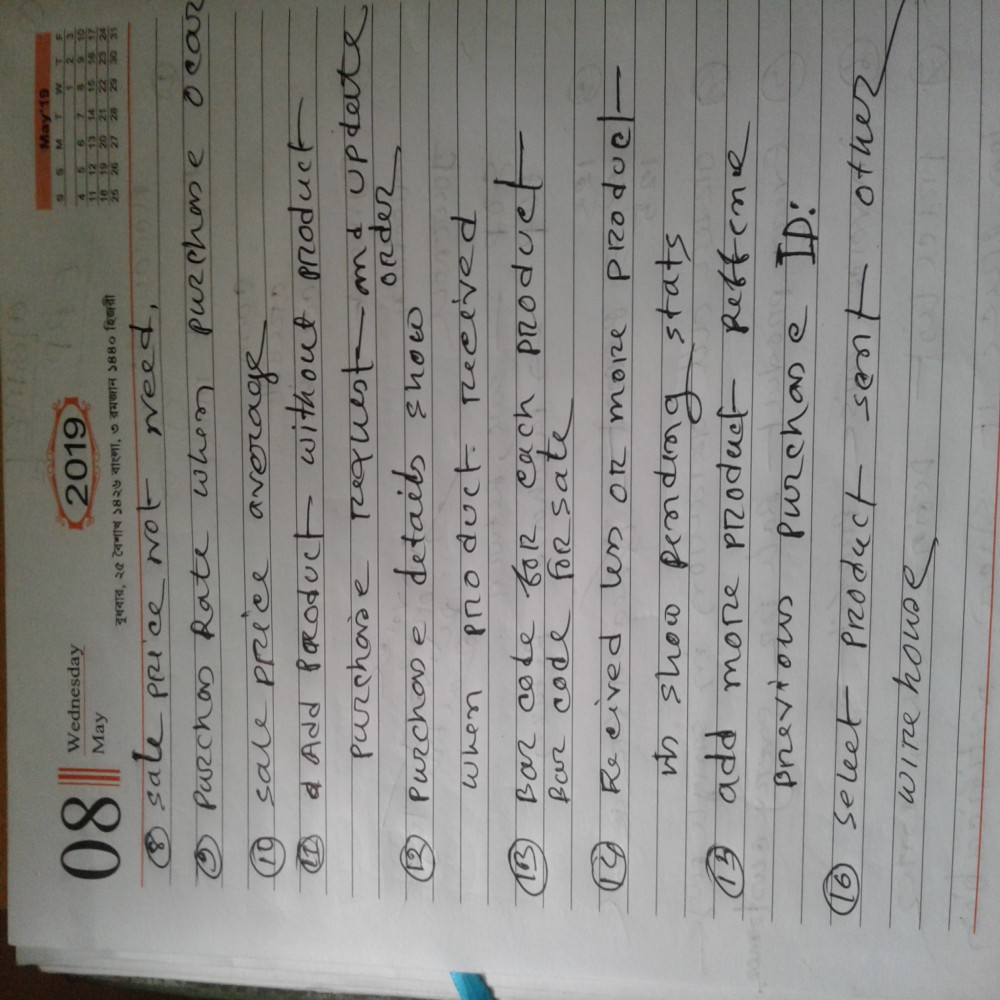 08 Wednesday
May
2019
বুধবার, ২৫ বৈশাখ ১৪২৬ বাংলা, ৩ রমজান ১৪৪০ হিজরী
May'19
S S M T W T F
1 2 3
4 5 6 7 8 9 10
11 12 13 14 15 16 17
18 19 20 21 22 23 24
25 26 27 28 29 30 31
(8) sale price not need,
(9) purchas Rate when purchase ocar
(10) sale price average
(11) Add Product without product
purchase request and update
order
(12) purchase details show
when product received
(13) Bar code for each product
Bar code for sale
(14) Recived less or more product
show pending stats
(15) add more product refference
previous purchase ID:
(16) select product sent other
wirehouse